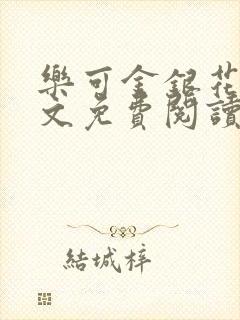 樂可金銀花
文免費閱讀
結城梓